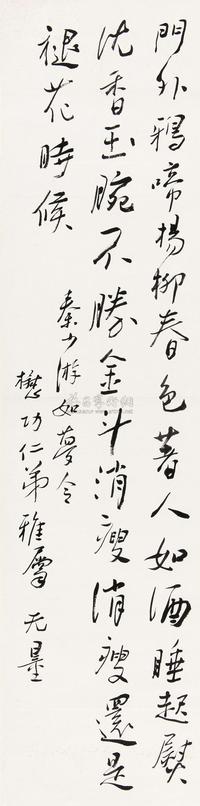 門外鴉啼楊柳春色著人如酒睡起熨
沈香玉腕不勝金斗消瘦消瘦還是
褪花時候
秦少游如夢令
懋功仁弟雅屬 无量